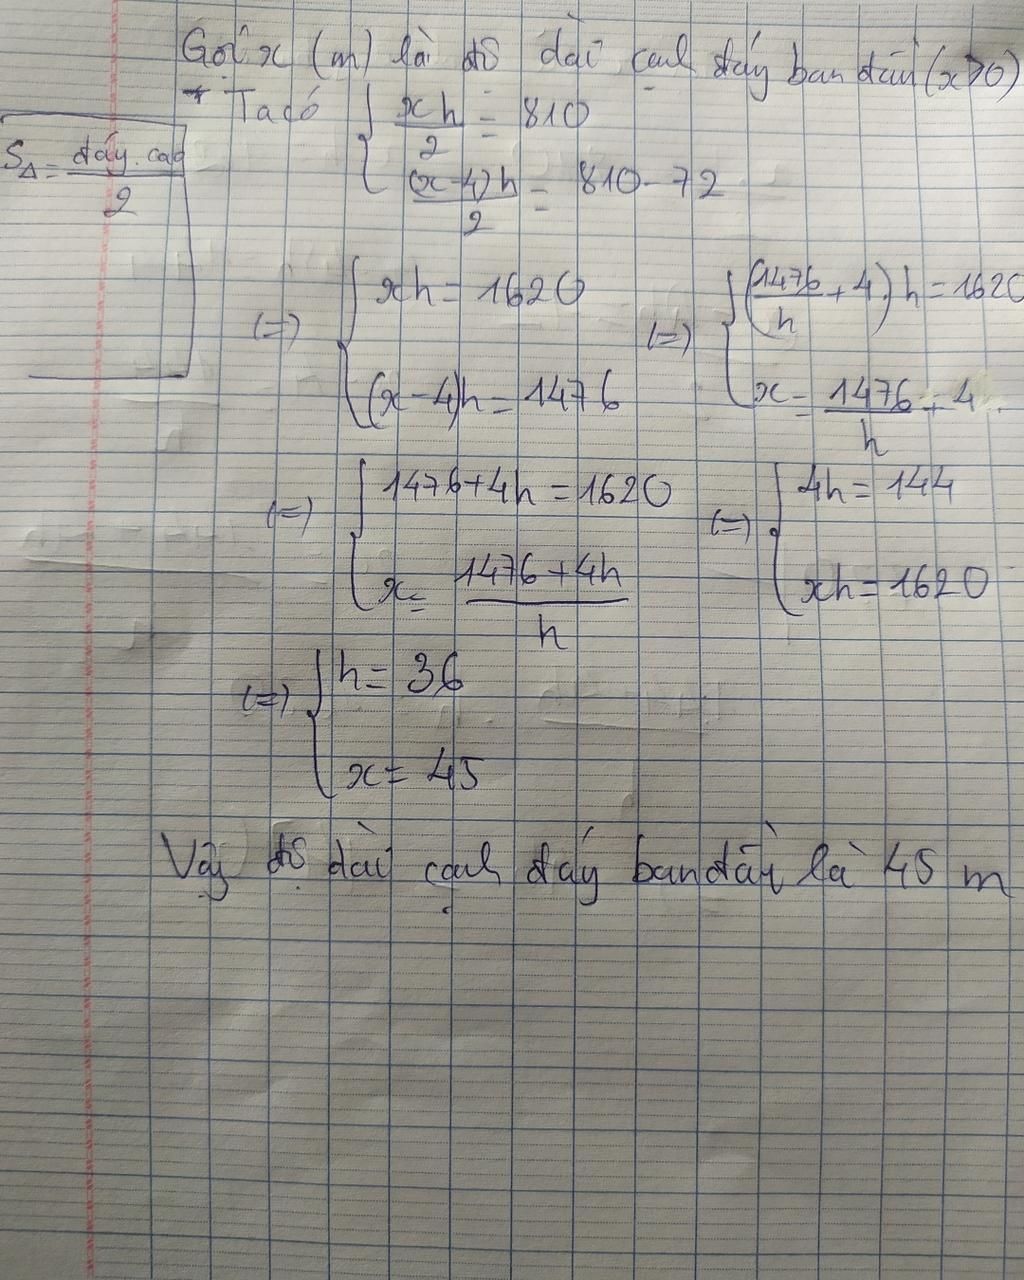 Gọi x (m) là độ dài cạnh đáy ban đầu (x>0)
* Ta có { xh/2 = 810
(x-4)h/2 = 810 - 72
S△ = đáy.cao/2
(=) { xh = 1620
(x-4)h = 1476
(=) { (1476/h + 4).h = 1620
x = 1476/h + 4
(=) { 1476+4h = 1620
x = (1476+4h)/h
(=) { 4h = 144
xh = 1620
(=) { h = 36
x = 45
Vậy độ dài cạnh đáy ban đầu là 45 m